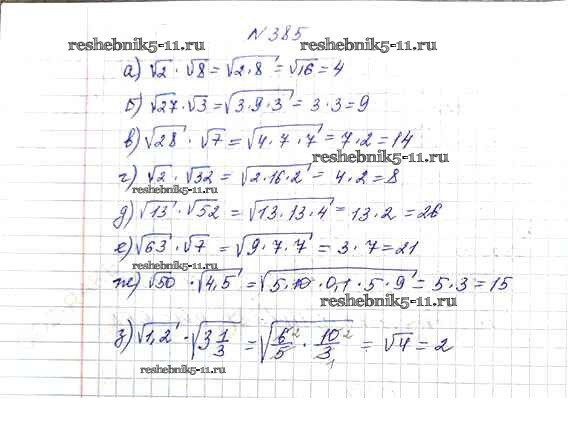 №385
reshebnik5-11.ru reshebnik5-11.ru
а) √2 · √8 = √(2·8) = √16 = 4
б) √27 · √3 = √(3·9·3) = 3·3 = 9
в) √28 · √7 = √(4·7·7) = 7·2 = 14
reshebnik5-11.ru
г) √2 · √32 = √(2·16·2) = 4·2 = 8
reshebnik5-11.ru
д) √13 · √52 = √(13·13·4) = 13·2 = 26
е) √63 · √7 = √(9·7·7) = 3·7 = 21
ж) √50 · √4,5 = √(5·10·0,1·5·9) = 5·3 = 15
reshebnik5-11.ru
з) √1,2 · √(3 1/3) = √(6²/5 · 10²/3₁) = √4 = 2
reshebnik5-11.ru